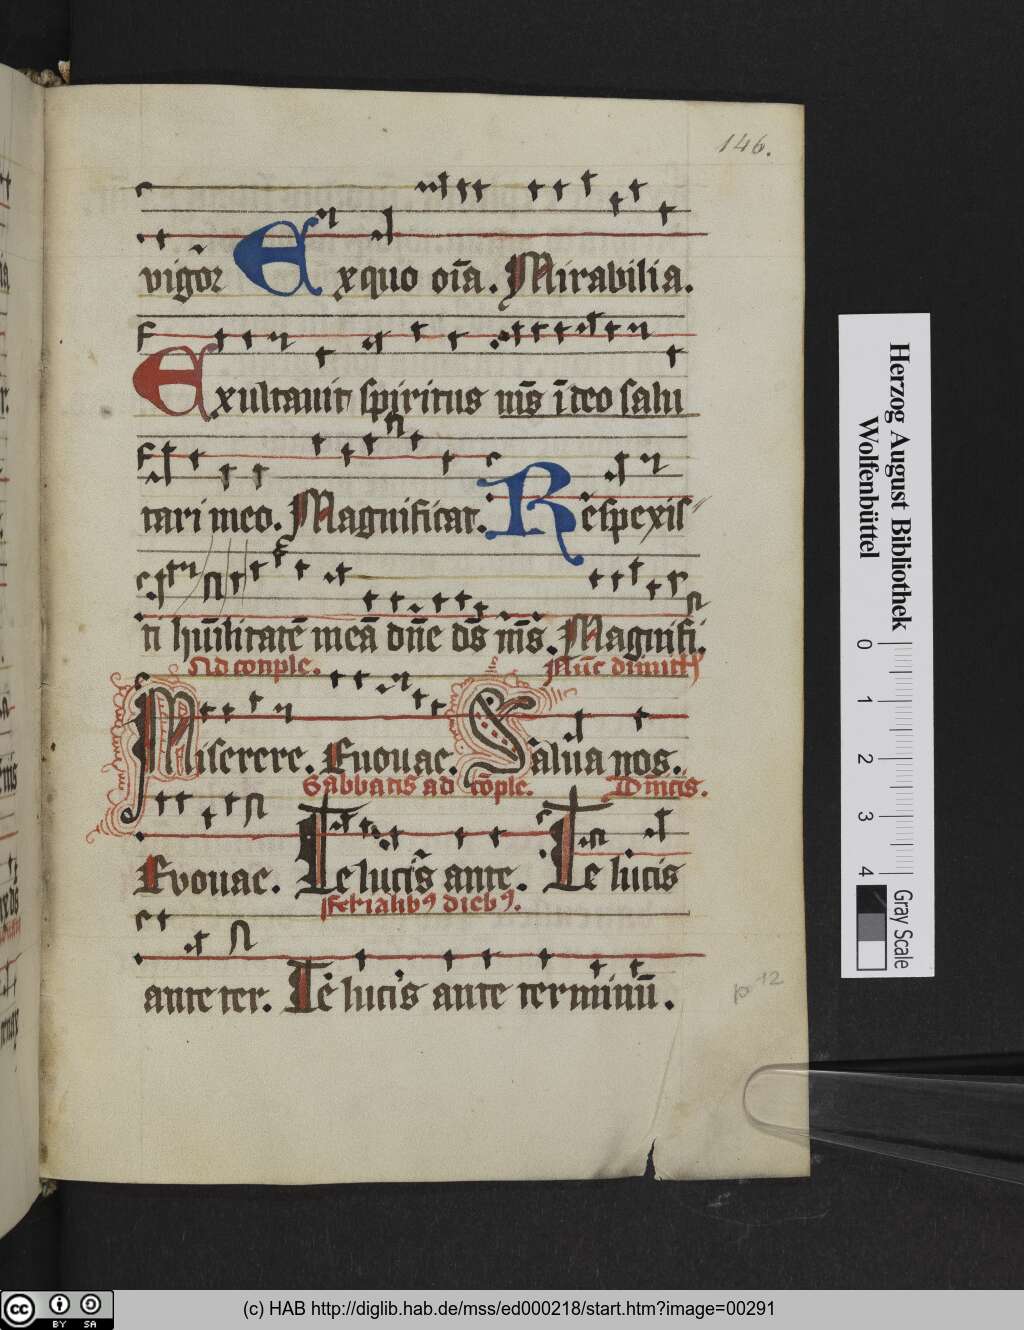 146.
vigo᷑r Exquo oīa. Mirabilia.
Exultauit spiritus m̄s ī deo salu
tari meo. Magnificat. Respexis
ti hūilitatē meā dn̄e ds̄ m̄s. Magnifi.
Ad conple. Nūc dimitt
Miserere. Euouae. Salua nos.
Sabbatis ad cōple. Dn̄icis.
Euouae. Te lucis ante. Te lucis
Ferialibꝰ diebꝰ.
ante ter. Te lucis ante terminū.
p 12
Herzog August Bibliothek
Wolfenbüttel
0 1 2 3 4
Gray Scale
(c) HAB http://diglib.hab.de/mss/ed000218/start.htm?image=00291
cc BY SA